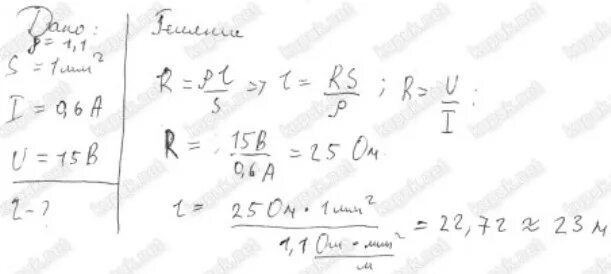 Дано:
ρ = 1,1
S = 1 мм²
I = 0,6 А
U = 15 В
l - ?
Решение
R = ρl/S => l = RS/ρ ; R = U/I ;
R = 15В/0,6А = 25 Ом
l = 25 Ом · 1 мм² / 1,1 Ом · мм²/м = 22,72 ≈ 23 м